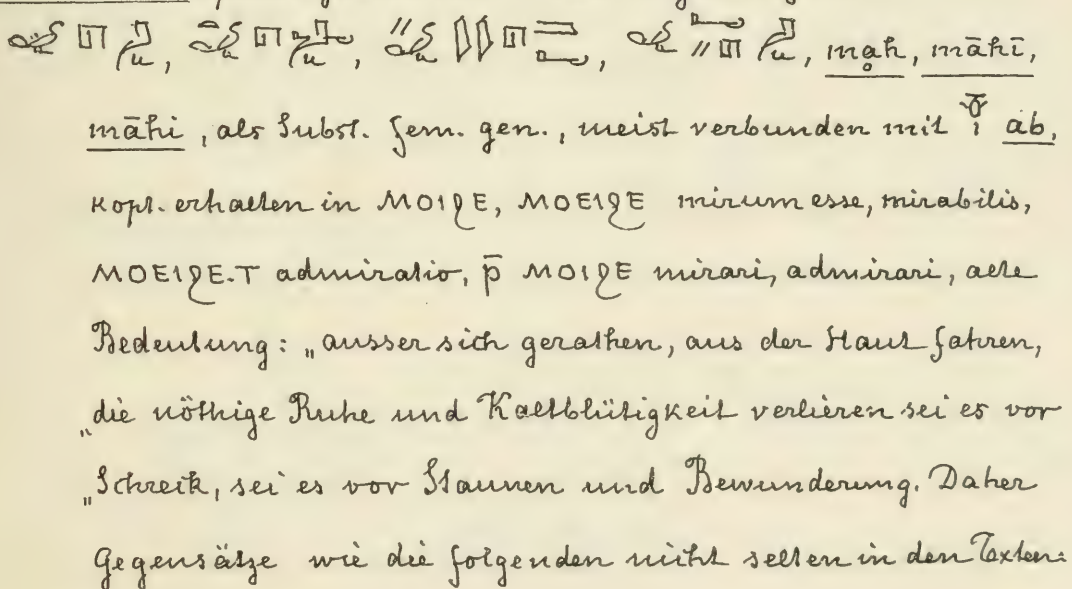 mạh, māhī,
māhi, als Subst. fem. gen., meist verbunden mit āb,
kopt. erhalten in ⲘⲞⲒϨⲈ, ⲘⲞⲈⲒϨⲈ mirum esse, mirabilis,
ⲘⲞⲈⲒϨⲈ.Ⲧ admiratio, ⲣ̄ ⲘⲞⲒϨⲈ mirari, admirari, alte
Bedeutung: „ausser sich gerathen, aus der Haut fahren,
„die nöthige Ruhe und Kaltblütigkeit verlieren sei es vor
„Schreck, sei es vor Staunen und Bewunderung. Daher
Gegensätze wie die folgenden nicht selten in den Texten: